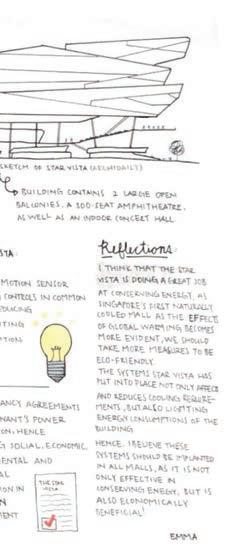 SKETCH OF STAR VISTA (ARCHDAILY)
BUILDING CONTAINS 2 LARGE OPEN
BALCONIES, A 300-SEAT AMPHITHEATRE,
AS WELL AS AN INDOOR CONCERT HALL
STA:
MOTION SENSOR
CONTROLS IN COMMON
EDUCING
TING
TION
ANCY AGREEMENTS
NANT'S POWER
ION. HENCE
G SOCIAL, ECONOMIC,
MENTAL AND
AL
ION IN
N
MENT
THE STAR
VISTA
Reflections:
I THINK THAT THE STAR
VISTA IS DOING A GREAT JOB
AT CONSERVING ENERGY. AS
SINGAPORE'S FIRST NATURALLY
COOLED MALL AS THE EFFECTS
OF GLOBAL WARMING BECOMES
MORE EVIDENT, WE SHOULD
TAKE MORE MEASURES TO BE
ECO-FRIENDLY.
THE SYSTEMS STAR VISTA HAS
PUT INTO PLACE NOT ONLY AFFECTS
AND REDUCES COOLING REQUIRE-
MENTS, BUT ALSO LIGHTING
ENERGY CONSUMPTIONS OF THE
BUILDING.
HENCE, I BELIEVE THESE
SYSTEMS SHOULD BE IMPLANTED
IN ALL MALLS, AS IT IS NOT
ONLY EFFECTIVE IN
CONSERVING ENERGY, BUT IS
ALSO ECONOMICALLY
BENEFICIAL!
EMMA